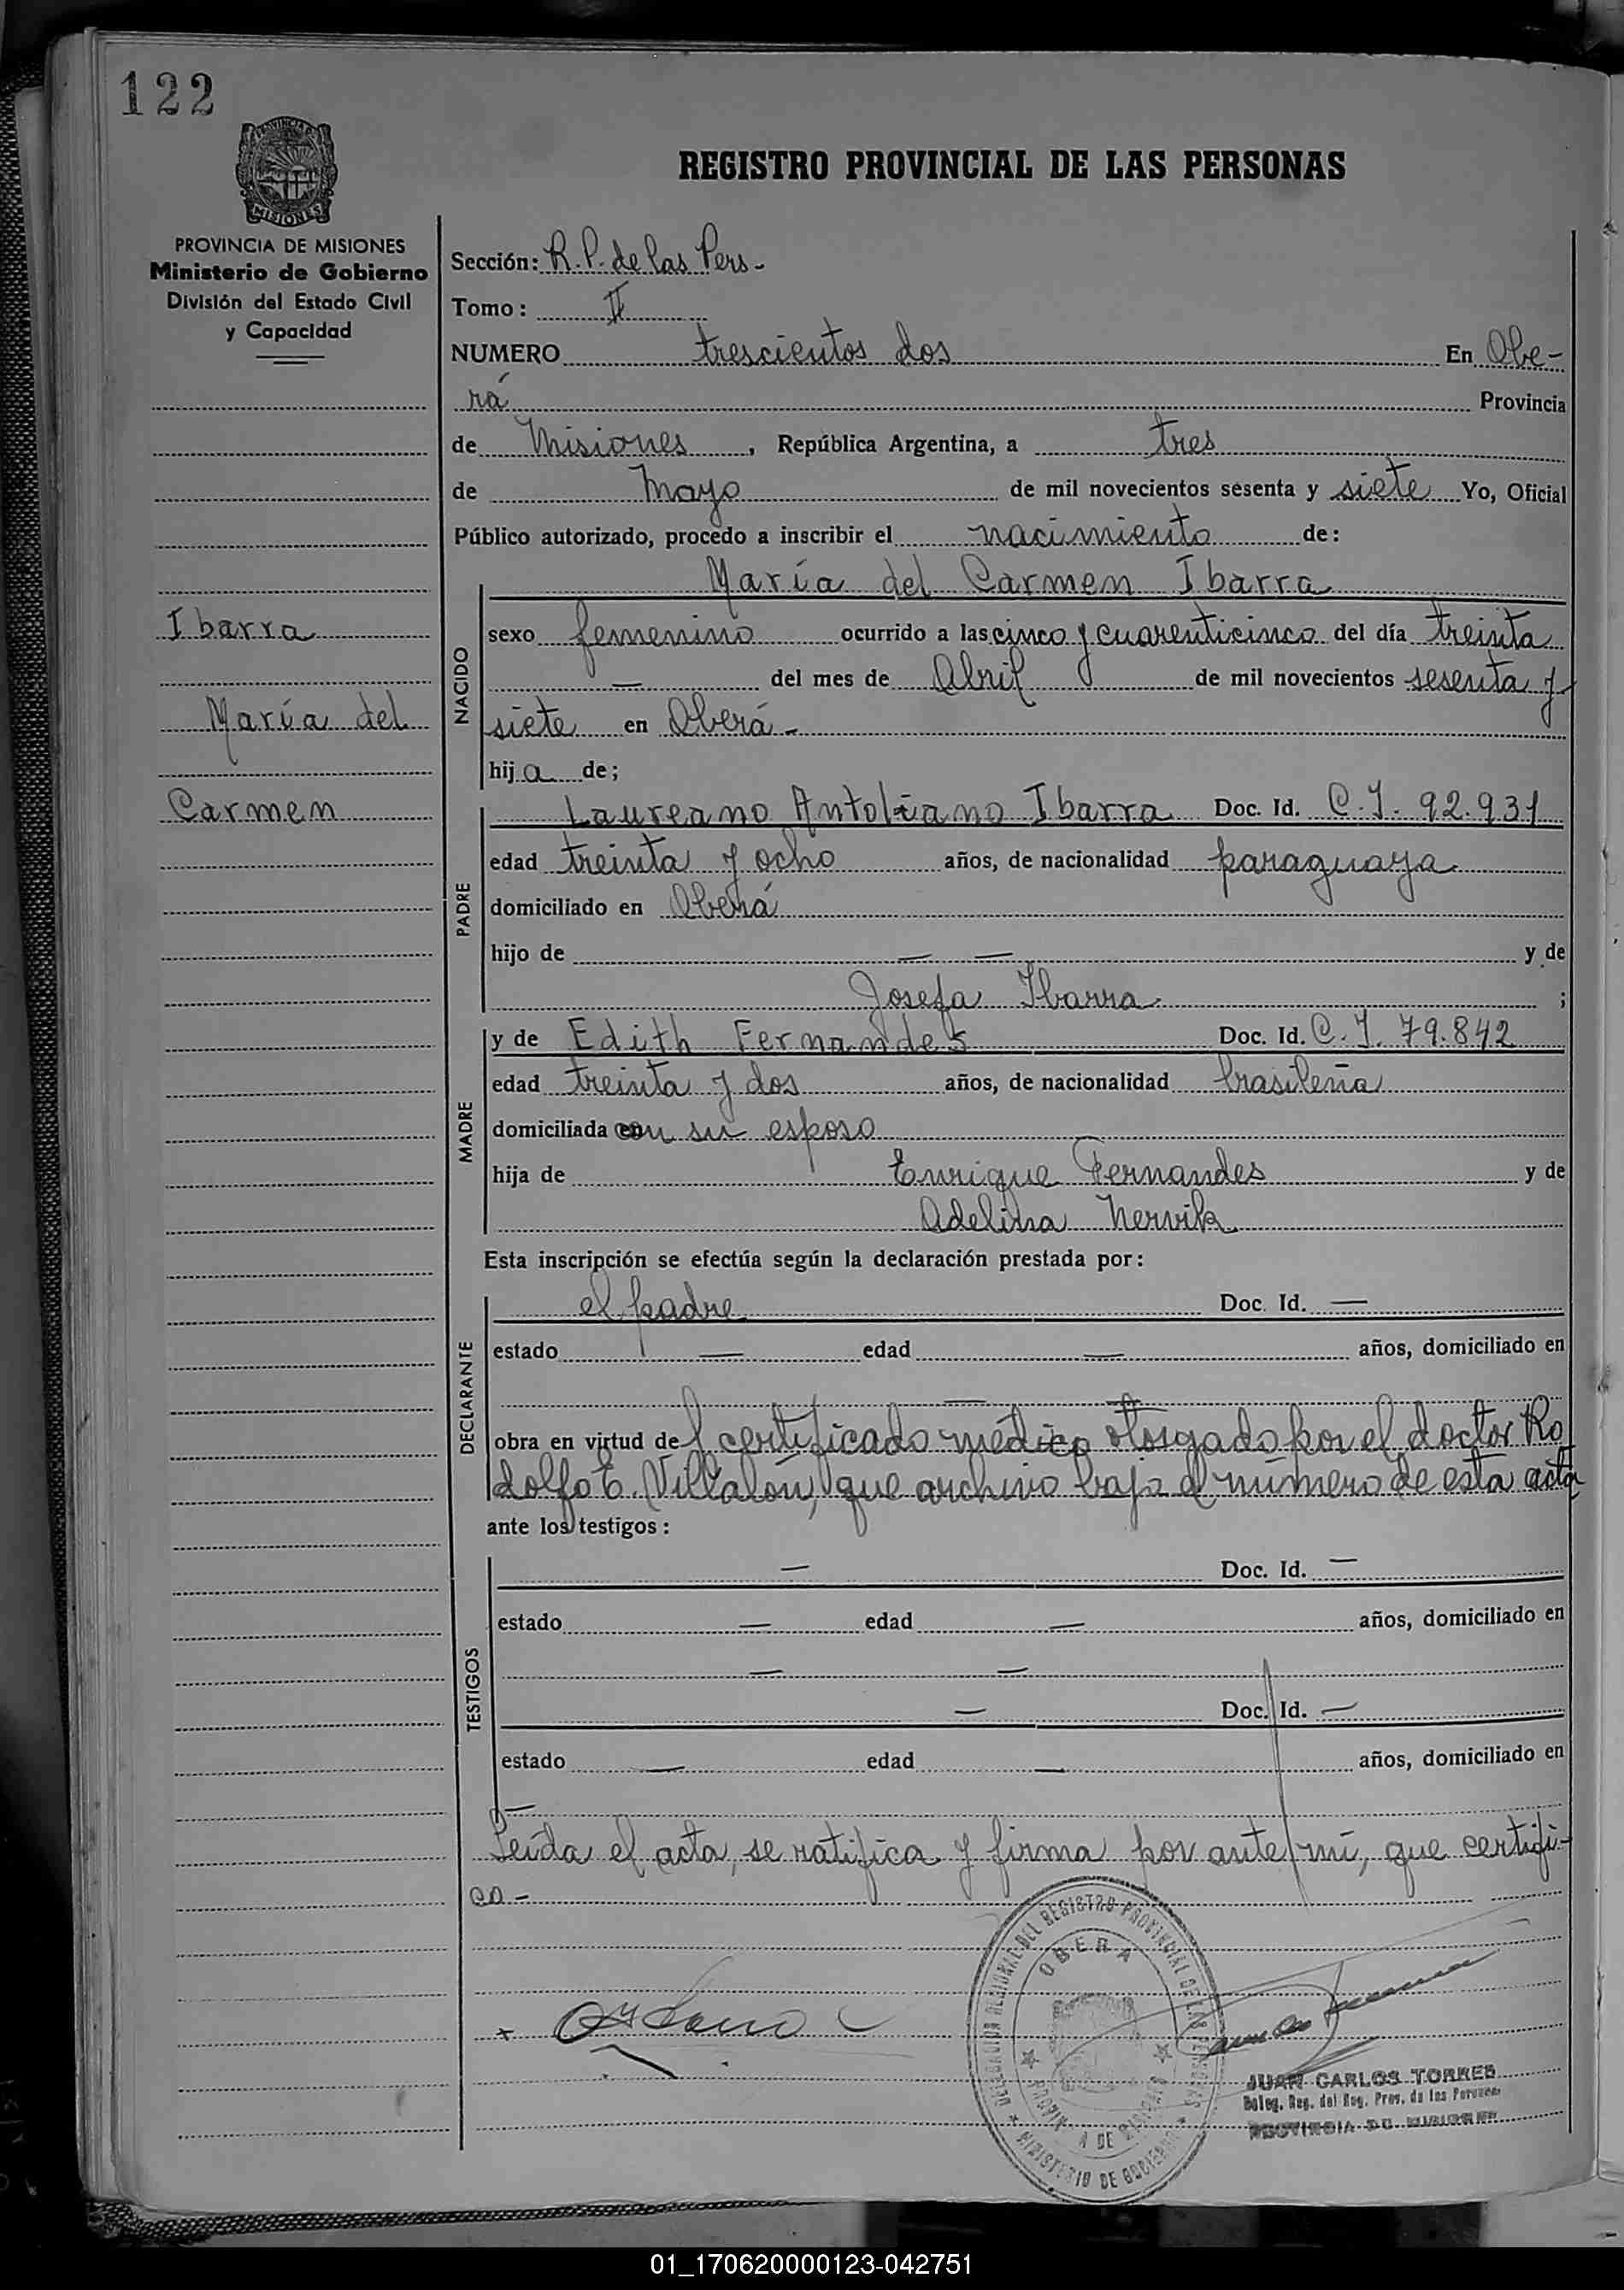 122
PROVINCIA DE
MISIONES
REGISTRO PROVINCIAL DE LAS PERSONAS
PROVINCIA DE MISIONES
Ministerio de Gobierno
División del Estado Civil
y Capacidad
Sección: R.P. de las Pers-
Tomo: II
NUMERO trescientos dos En Obe-
rá Provincia
de Misiones, República Argentina, a tres
de Mayo de mil novecientos sesenta y siete Yo, Oficial
Público autorizado, procedo a inscribir el nacimiento de:
María del Carmen Ibarra
Ibarra
María del
Carmen
NACIDO
sexo femenino ocurrido a las cinco y cuarenticinco del día treinta
— del mes de Abril de mil novecientos sesenta y
siete en Oberá-
hija de;
PADRE
Laureano Antoliano Ibarra Doc. Id. C.I. 92.931
edad treinta y ocho años, de nacionalidad paraguaya
domiciliado en Oberá
hijo de — — y de
Josefa Ibarra ;
MADRE
y de Edith Fernandes Doc. Id. C.I. 79.842
edad treinta y dos años, de nacionalidad brasileña
domiciliada con su esposo
hija de Enrique Fernandes y de
Adelina Nervik
Esta inscripción se efectúa según la declaración prestada por:
DECLARANTE
el padre Doc. Id. —
estado — edad — años, domiciliado en
— —
obra en virtud del certificado médico otorgado por el doctor Ro
dolfo E. Villalón, que archivo bajo el número de esta acta
ante los testigos:
TESTIGOS
— Doc. Id. —
estado — edad — años, domiciliado en
— —
— Doc. Id. —
estado — edad — años, domiciliado en
—
Leída el acta, se ratifica y firma por ante mí, que certifi-
co-
DELEGACION REGIONAL DEL REGISTRO PROVINCIAL DE LAS PERSONAS
OBERA
PROVINCIA DE MISIONES
MINISTERIO DE GOBIERNO
JUAN CARLOS TORRES
Deleg. Reg. del Reg. Prov. de las Personas
PROVINCIA DE MISIONES
01_170620000123-042751